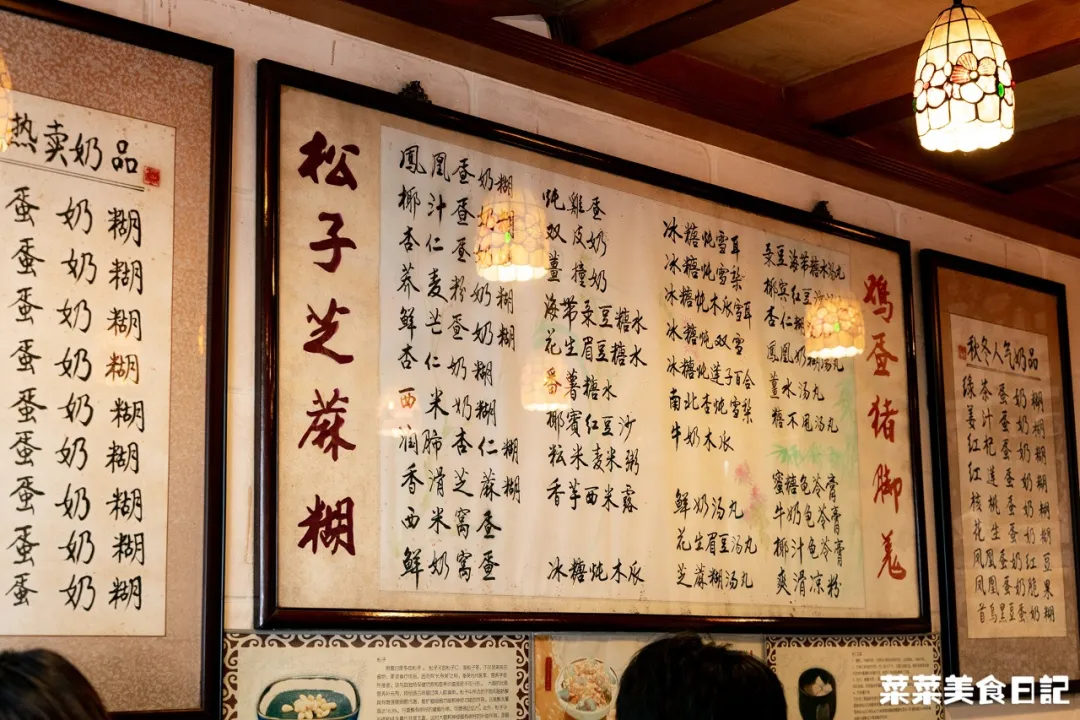 热卖奶品
蛋奶糊
蛋奶糊
蛋奶糊
蛋奶糊
蛋奶糊
蛋奶糊
蛋奶糊
蛋奶糊
蛋奶糊
松子芝麻糊
鳳凰蛋奶糊
椰汁蛋奶糊
杏仁蛋奶糊
荞麦粉奶糊
鲜芒蛋奶糊
杏仁奶糊
西米奶糊
润肺杏仁糊
香滑芝麻糊
西米窝蛋
鲜奶窝蛋
炖雞蛋
双皮奶
薑撞奶
海带菉豆糖水
花生眉豆糖水
番薯糖水
椰賓红豆沙
粘米麦米粥
香芋西米露
冰糖炖木瓜
冰糖炖雪耳
冰糖炖雪梨
冰糖炖木瓜雪耳
冰糖炖双雪
冰糖炖莲子百合
南北杏炖雪梨
牛奶木瓜
鲜奶汤丸
花生眉豆汤丸
芝麻糊汤丸
菉豆海带糖水汤丸
椰賓红豆
杏仁糊
鳳凰奶糊汤丸
薑水汤丸
糖不甩汤丸
蜜糖龟苓膏
牛奶龟苓膏
椰汁龟苓膏
爽滑凉粉
鸡蛋猪脚羌
秋冬人气奶品
绿茶蛋奶糊
姜汁蛋奶糊
红杞蛋奶糊
红莲蛋奶糊
核桃蛋奶糊
花生蛋奶糊
凤凰蛋奶红豆
凤凰蛋奶脆果
首乌黑豆蛋奶糊
松子
菜菜美食日記